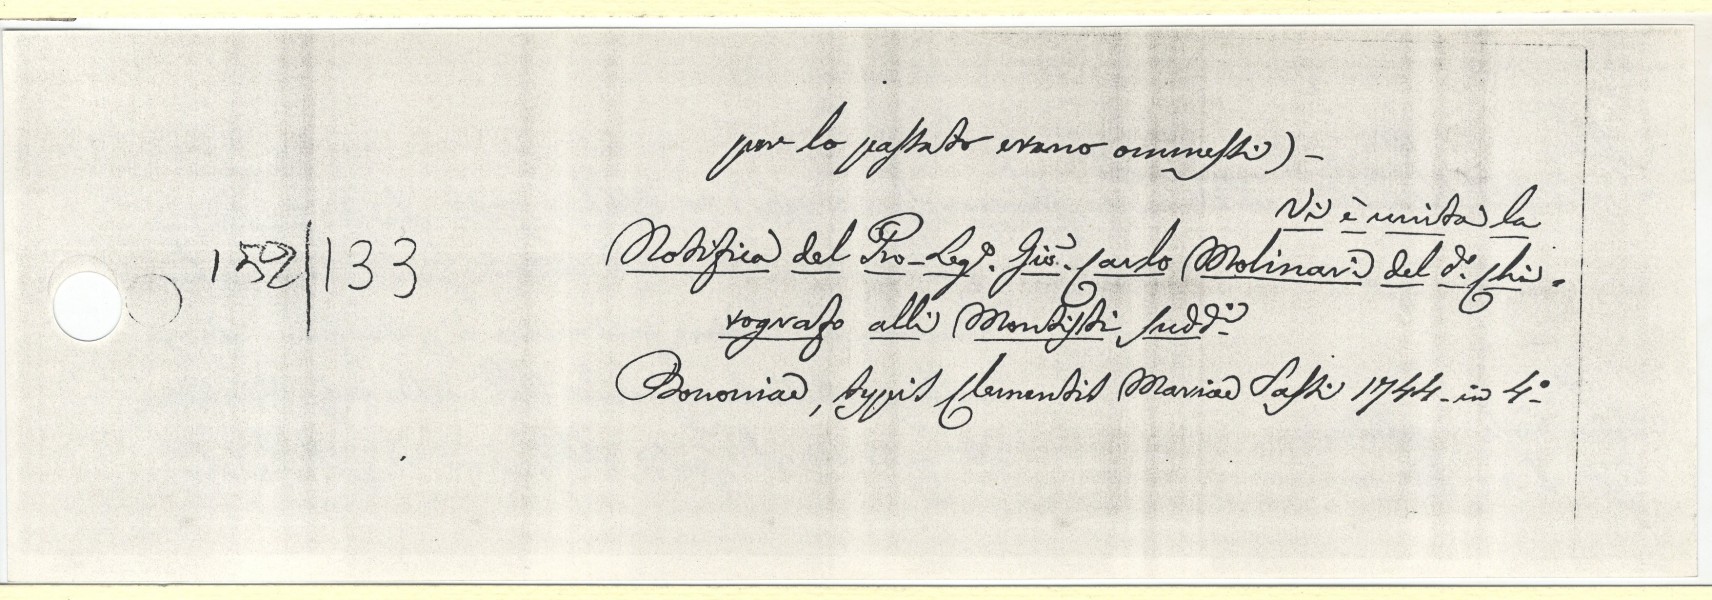 per lo passato erano ommessi) -
Vi è unita la
152/133
Notifica del Pro-Leg.º Gio. Carlo Molinari del d.º Chi-
rografo alli Montisti sudd.i
Bononiae, typis Clementis Mariae Sassi 1744. in 4.º